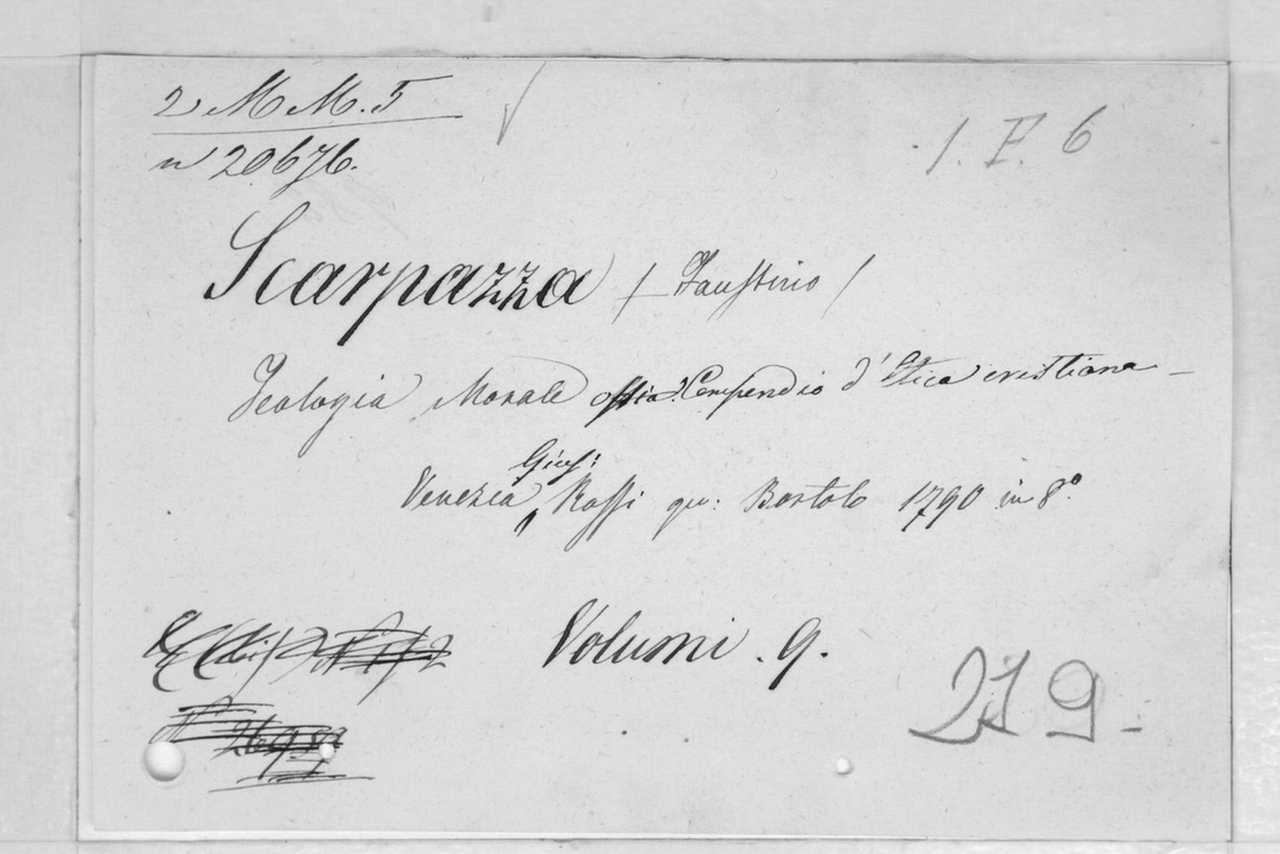 2 M M. 5
1. F. 6
n 20676.
Scarpazza (Faustino)
Teologia Morale ossia Compendio d'Etica cristiana -
Gius:
Venezia Rossi qu: Bortolo 1790 in 8º.
Volumi . 9.
219 -